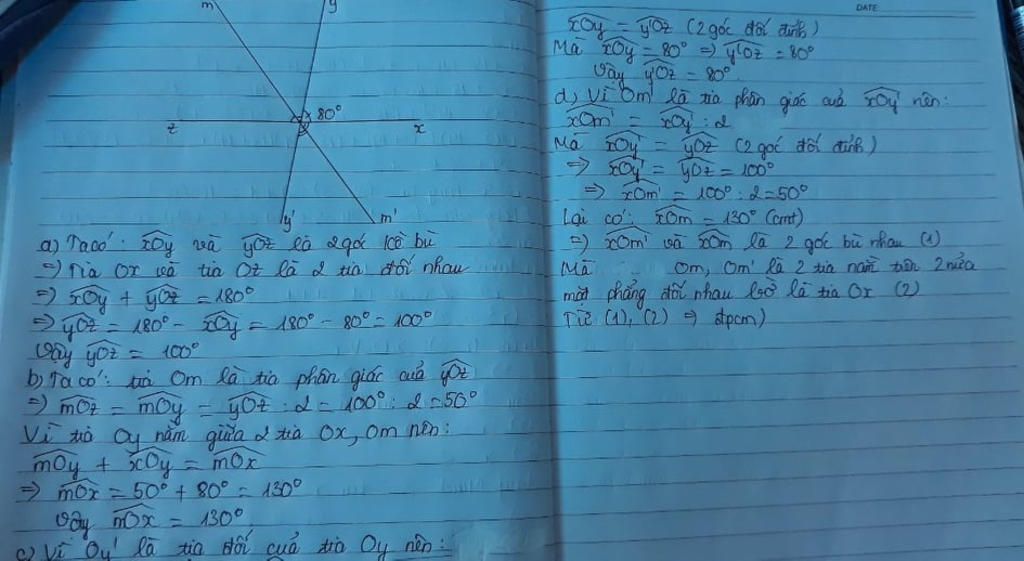 m
y
80°
z
x
y'
m'
a) Ta có: xOy và yOz là 2 góc kề bù
=> Tia Ox và tia Oz là 2 tia đối nhau
=> xOy + yOz = 180°
=> yOz = 180° - xOy = 180° - 80° = 100°
Vậy yOz = 100°
b) Ta có: tia Om là tia phân giác của yOz
=> mOz = mOy = yOz : 2 = 100° : 2 = 50°
Vì tia Oy nằm giữa 2 tia Ox, Om nên:
mOy + xOy = mOx
=> mOx = 50° + 80° = 130°
Vậy mOx = 130°
c) Vì Oy' là tia đối của tia Oy nên:
DATE
xOy = y'Oz (2 góc đối đỉnh)
Mà xOy = 80° => y'Oz = 80°
Vậy y'Oz = 80°
d) Vì Om' là tia phân giác của xOy' nên:
xOm' = xOy' : 2
Mà xOy' = yOz (2 góc đối đỉnh)
=> xOy' = yOz = 100°
=> xOm' = 100° : 2 = 50°
Lại có: xOm = 130° (cmt)
=> xOm' và xOm là 2 góc bù nhau (1)
Mà Om, Om' là 2 tia nằm trên 2 nửa
mặt phẳng đối nhau bờ là tia Ox (2)
Từ (1), (2) => đpcm)